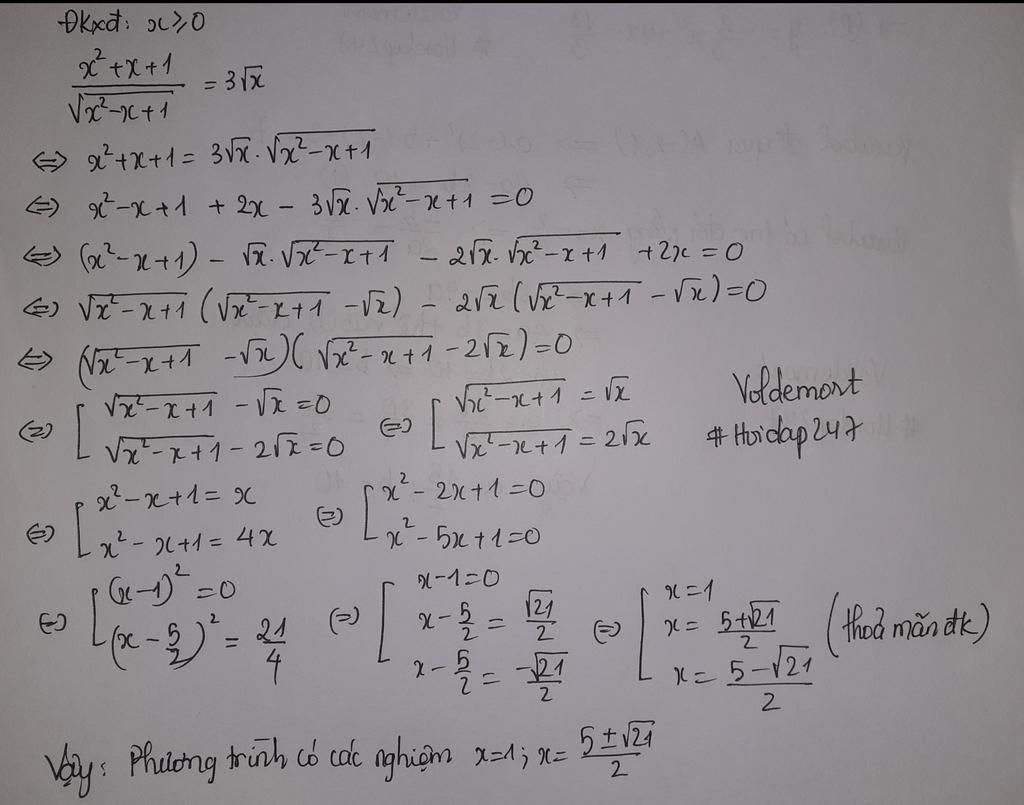 Đkxđ: x ≥ 0
(x² + x + 1) / √(x² - x + 1) = 3√x
⇔ x² + x + 1 = 3√x . √(x² - x + 1)
⇔ x² - x + 1 + 2x - 3√x . √(x² - x + 1) = 0
⇔ (x² - x + 1) - √x . √(x² - x + 1) - 2√x . √(x² - x + 1) + 2x = 0
⇔ √(x² - x + 1) (√(x² - x + 1) - √x) - 2√x (√(x² - x + 1) - √x) = 0
⇔ (√(x² - x + 1) - √x)(√(x² - x + 1) - 2√x) = 0
⇔ [ √(x² - x + 1) - √x = 0 ⇔ [ √(x² - x + 1) = √x
√(x² - x + 1) - 2√x = 0 √(x² - x + 1) = 2√x
Voldemort
#Hoidap247
⇔ [ x² - x + 1 = x ⇔ [ x² - 2x + 1 = 0
x² - x + 1 = 4x x² - 5x + 1 = 0
⇔ [ (x - 1)² = 0 ⇔ [ x - 1 = 0 ⇔ [ x = 1
(x - 5/2)² = 21/4 x - 5/2 = √21/2 x = (5 + √21)/2 (thoả mãn đk)
x - 5/2 = -√21/2 x = (5 - √21)/2
Vậy: Phương trình có các nghiệm x = 1; x = (5 ± √21)/2